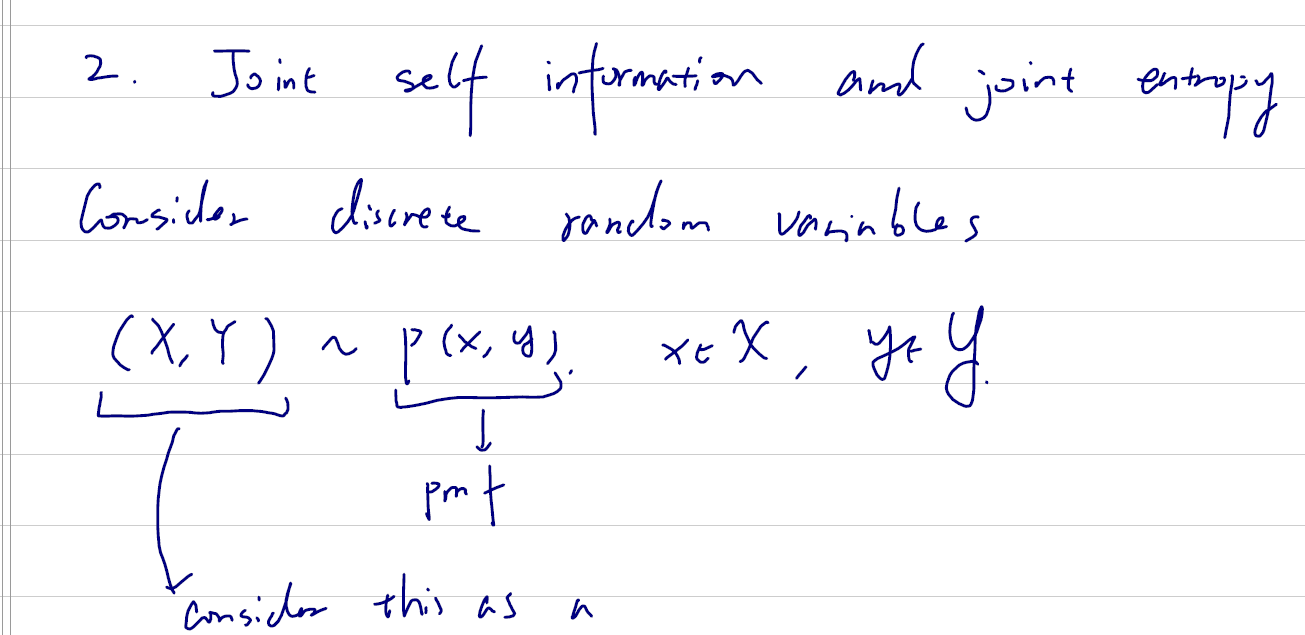 2. Joint self information and joint entropy
Consider discrete random variables
(X, Y) ~ p(x, y). x ∈ 𝒳, y ∈ 𝒴.
pmf
Consider this as a